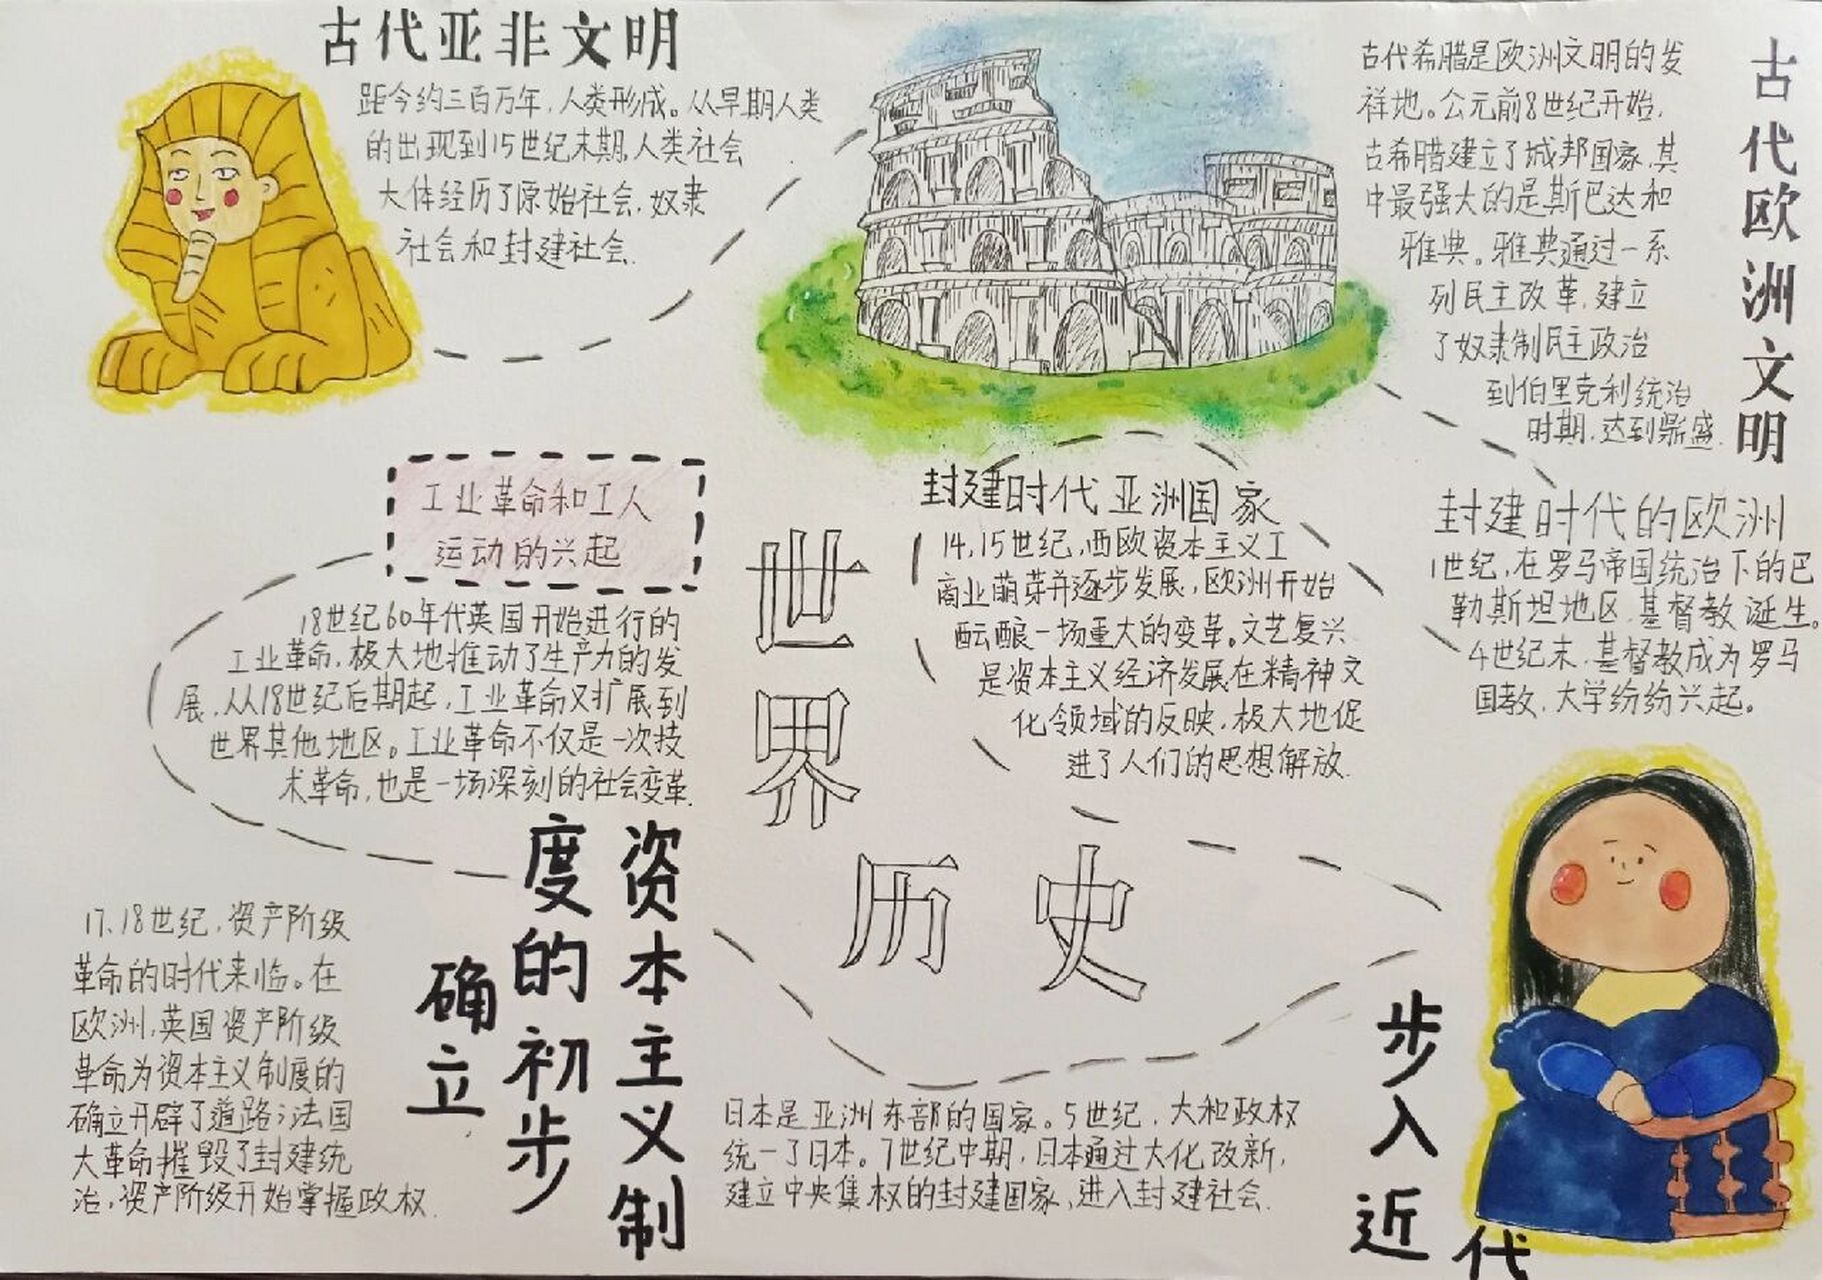 古代亚非文明
距今约三百万年,人类形成。从早期人类
的出现到15世纪末期,人类社会
大体经历了原始社会,奴隶
社会和封建社会.
古代欧洲文明
古代希腊是欧洲文明的发
祥地。公元前8世纪开始,
古希腊建立了城邦国家,其
中最强大的是斯巴达和
雅典。雅典通过一系
列民主改革,建立
了奴隶制民主政治
到伯里克利统治
时期,达到鼎盛.
工业革命和工人
运动的兴起
18世纪60年代英国开始进行的
工业革命,极大地推动了生产力的发
展,从18世纪后期起,工业革命又扩展到
世界其他地区。工业革命不仅是一次技
术革命,也是一场深刻的社会变革.
世界历史
封建时代亚洲国家
14,15世纪,西欧资本主义工
商业萌芽并逐步发展,欧洲开始
酝酿一场重大的变革。文艺复兴
是资本主义经济发展在精神文
化领域的反映,极大地促
进了人们的思想解放.
封建时代的欧洲
1世纪,在罗马帝国统治下的巴
勒斯坦地区,基督教诞生。
4世纪末,基督教成为罗马
国教,大学纷纷兴起。
资本主义制
度的初步
确立
17、18世纪,资产阶级
革命的时代来临。在
欧洲,英国资产阶级
革命为资本主义制度的
确立开辟了道路;法国
大革命摧毁了封建统
治,资产阶级开始掌握政权.
日本是亚洲东部的国家。5世纪,大和政权
统一了日本。7世纪中期,日本通过大化改新,
建立中央集权的封建国家,进入封建社会.
步入近代